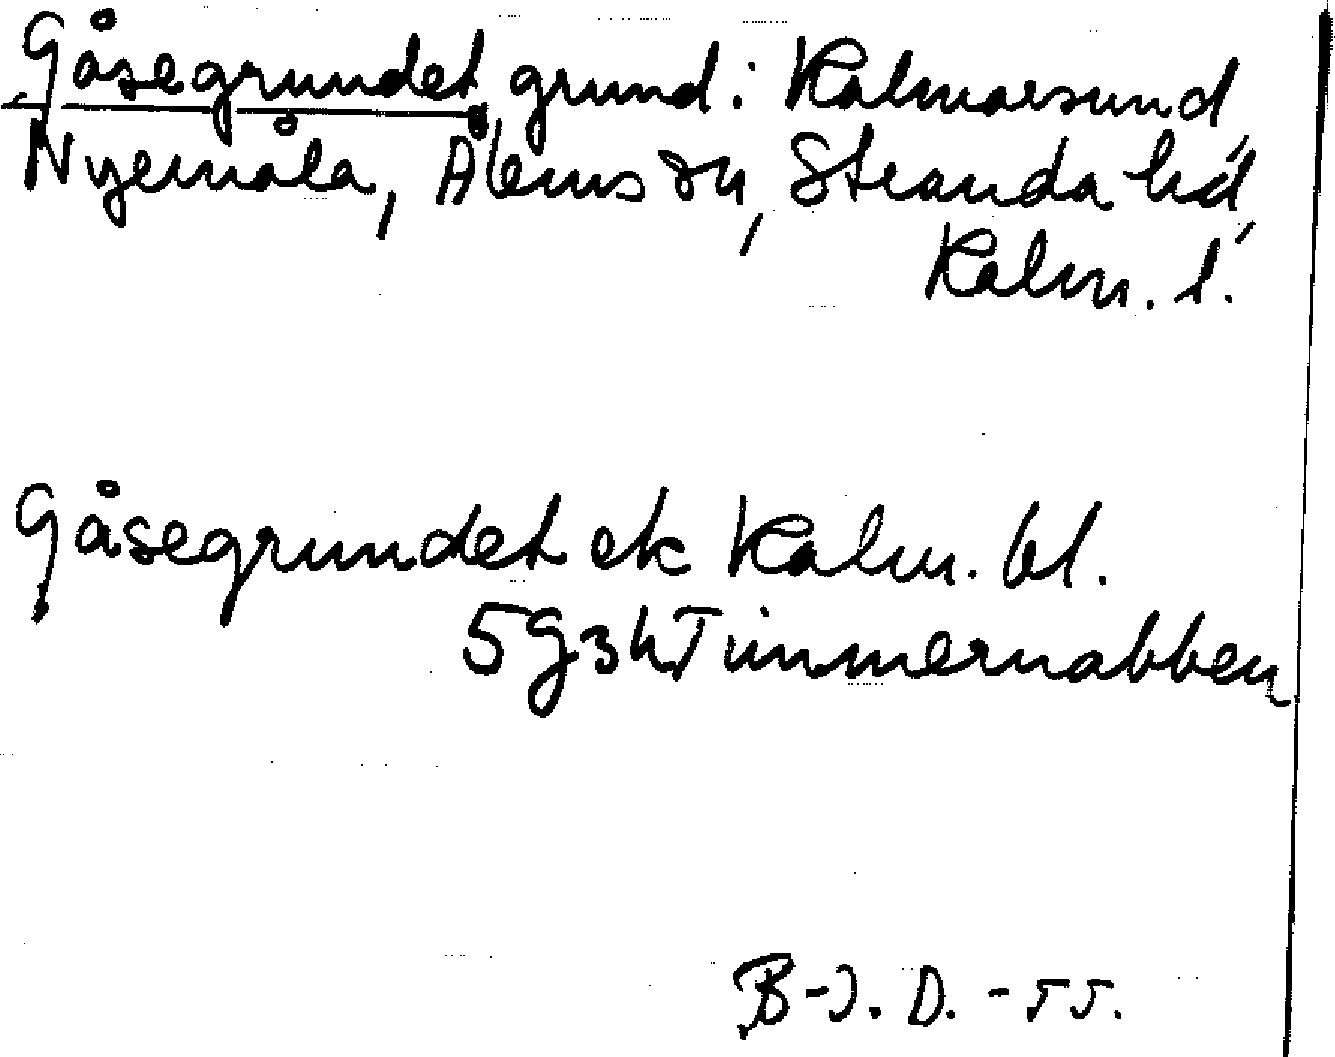 Gåsegrundet, grund i Kalmarsund,
Nyemåla, Ålems sn, Stranda hd,
Kalm. l.
Gåsegrundet ek Kalm. bl.
5G3h Timmernabben
B-J. D. -55.